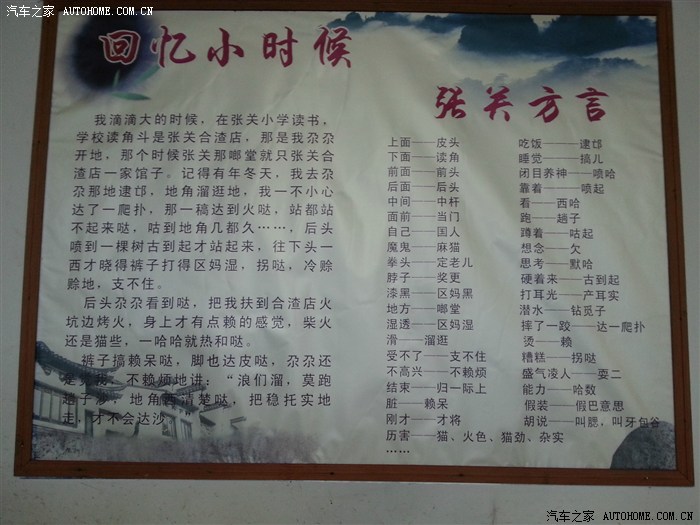 汽车之家 AUTOHOME.COM.CN
回忆小时候
我滴滴大的时候，在张关小学读书，
学校读角斗是张关合渣店，那是我尕尕
开地，那个时候张关那嘟堂就只张关合
渣店一家馆子。记得有年冬天，我去尕
尕那地逮邙，地角溜逛地，我一不小心
达了一爬扑，那一稿达到火哒，站都站
不起来哒，咕到地角几都久……，后头
喷到一棵树古到起才站起来，往下头一
西才晓得裤子打得区妈湿，拐哒，冷赊
赊地，支不住。
后头尕尕看到哒，把我扶到合渣店火
坑边烤火，身上才有点赖的感觉，柴火
还是猫些，一哈哈就热和哒。
裤子搞赖呆哒，脚也达皮哒，尕尕还
不赖烦地讲：“浪们溜，莫跑
趟子沙，地角西清楚哒，把稳托实地
走，才不会达沙
张关方言
上面——皮头
下面——读角
前面——前头
后面——后头
中间——中杆
面前——当门
自己——国人
魔鬼——麻猫
拳头——定老儿
脖子——奖更
漆黑——区妈黑
地方——嘟堂
湿透——区妈湿
滑——溜逛
受不了——支不住
不高兴——不赖烦
结束——归一际上
脏——赖呆
刚才——才将
历害——猫、火色、猫劲、杂实
……
吃饭——逮邙
睡觉——搞儿
闭目养神——喷哈
靠着——喷起
看——西哈
跑——趟子
蹲着——咕起
想念——欠
思考——默哈
硬着来——古到起
打耳光——产耳实
潜水——钻觅子
摔了一跤——达一爬扑
烫——赖
糟糕——拐哒
盛气凌人——耍二
能力——哈数
假装——假巴意思
胡说——叫腮，叫牙包谷
汽车之家 AUTOHOME.COM.CN